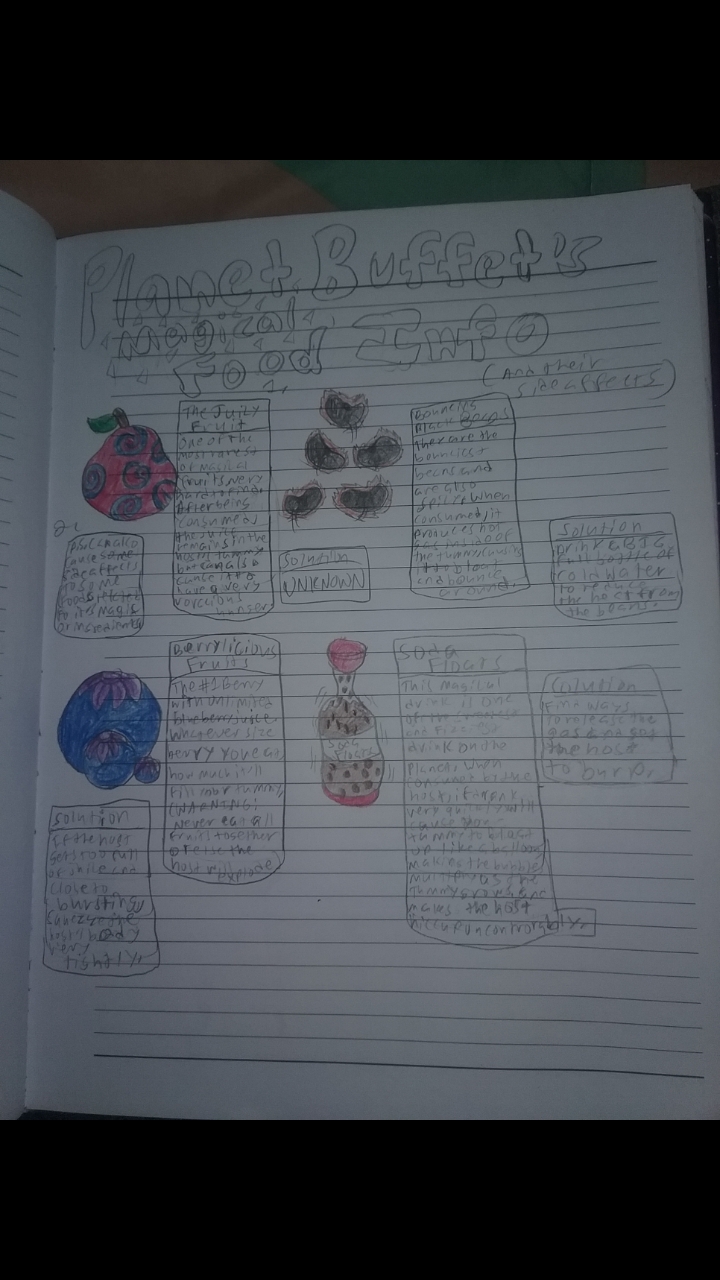 Planet Buffet's
Magical
Food Info
(And their
side affects)
The Juily
Fruit
One of the
most rarest
of magical
fruits, very
hard to find.
After being
consumed,
the juice
remains in the
hosts tummy
but can also
cause it to
have a very
voracious
hunger
cause some
side affects
to some
foods
to its magic
or ingredients
Solution
UNKNOWN
Bouncies
Black Beans
They are the
bounciest
beans and
are also
spicy when
consumed, it
produces hot
gas inside of
the tummy causing
it to bloat
and bounce
around.
Solution
Drink a BIG
full bottle of
cold water
to reduce
the heat from
the beans.
Berrylicious
Fruits
The #1 Berry
with unlimited
blueberry juice
Whatever size
berry you eat
how much it'll
fill your tummy
(WARNING!
Never eat all
fruits together
or else the
host will explode
Solution
If the host
gets too full
of juice and
close to
bursting,
squeeze the
host's body
very
tightly.
Soda
Floats
Soda
Floats
This magical
drink is one
of the
and fizzier
drink on the
Planet, when
consumed by the
host, if drank
very quickly will
cause your
tummy to bloat
up like a balloon
makes the bubbles
multiply as the
tummy grows and
makes the host
hiccup uncontrorably.
Solution
Find ways
to release the
gas and get
the host
to burp.